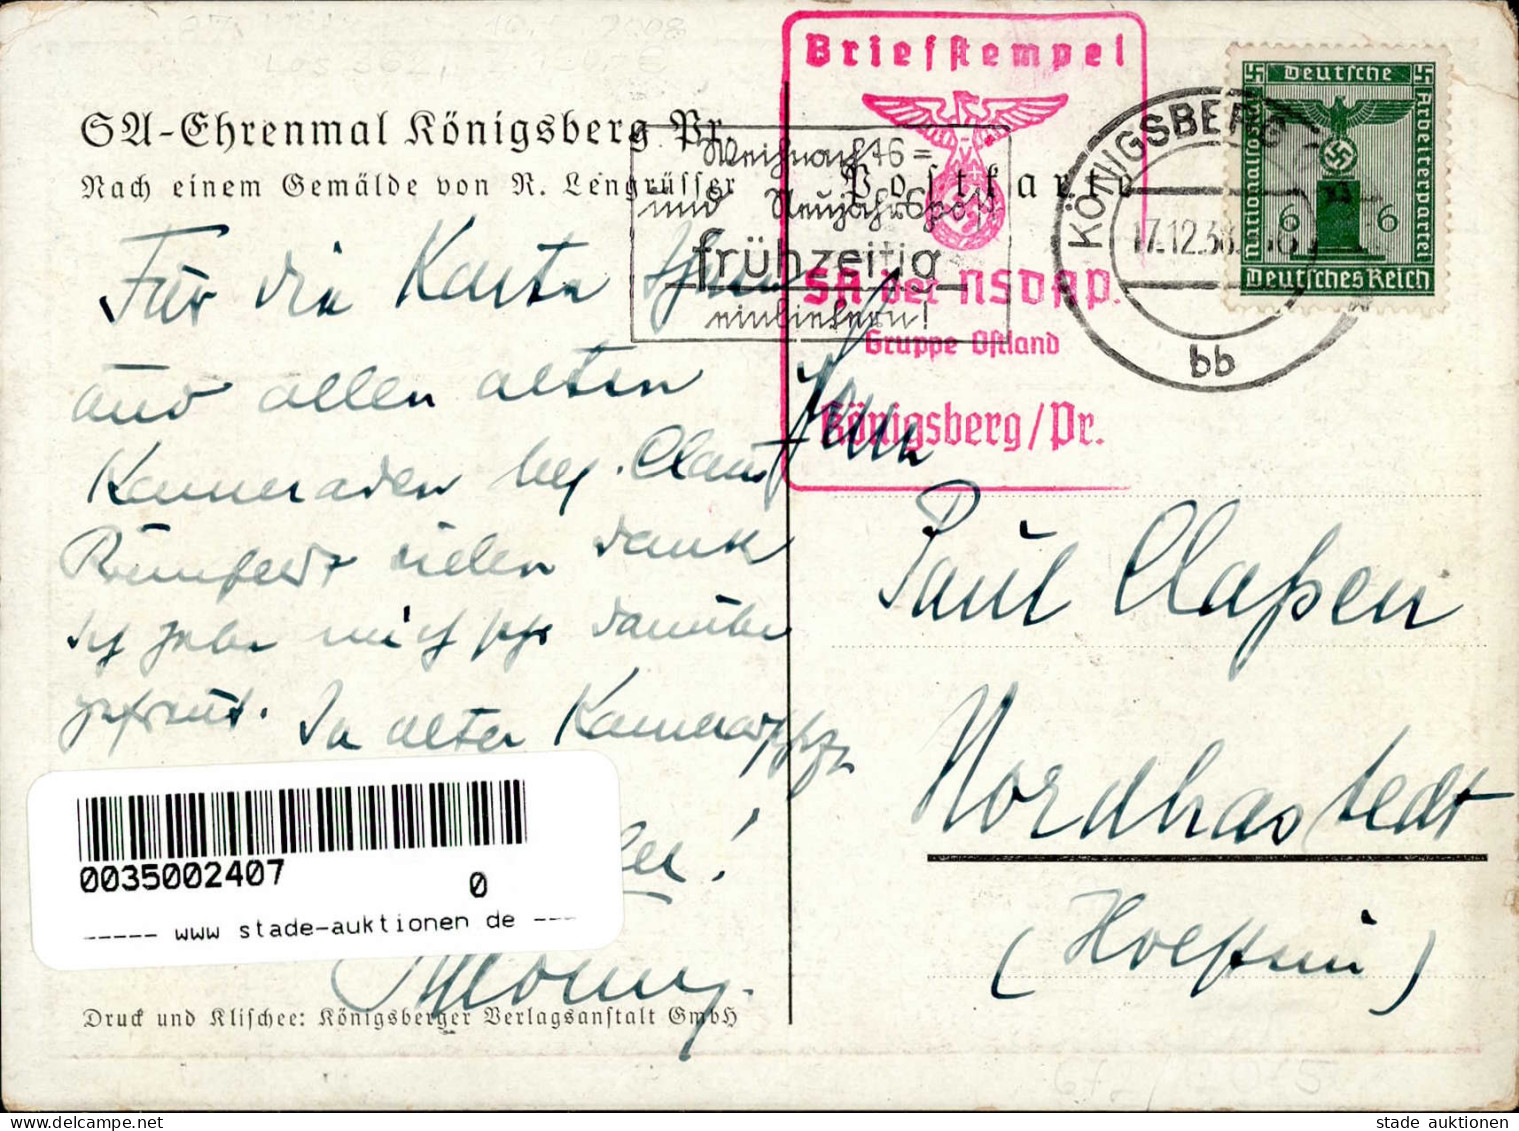 SA-Ehrenmal Königsberg Pr.
Nach einem Gemälde von R. Lengrüsser
Postkarte
Briefstempel
SA der NSDAP.
Gruppe Ostland
Königsberg/Pr.
Weihnachts=
und Neujahrspost
frühzeitig
einliefern!
KÖNIGSBERG
17.12.38
bb
Deutsche
Nationalsoz.
Arbeiterpartei
6 6
Deutsches Reich
Für die Karte
und allen alten
Kameraden
vielen Dank
Ich habe mich sehr darüber
gefreut. In alter
Herrn
Paul Claßen
Nordhastedt
(Holstein)
0035002407
0
----- www stade-auktionen de ---
Druck und Klischee: Königsberger Verlagsanstalt GmbH
stade auktionen